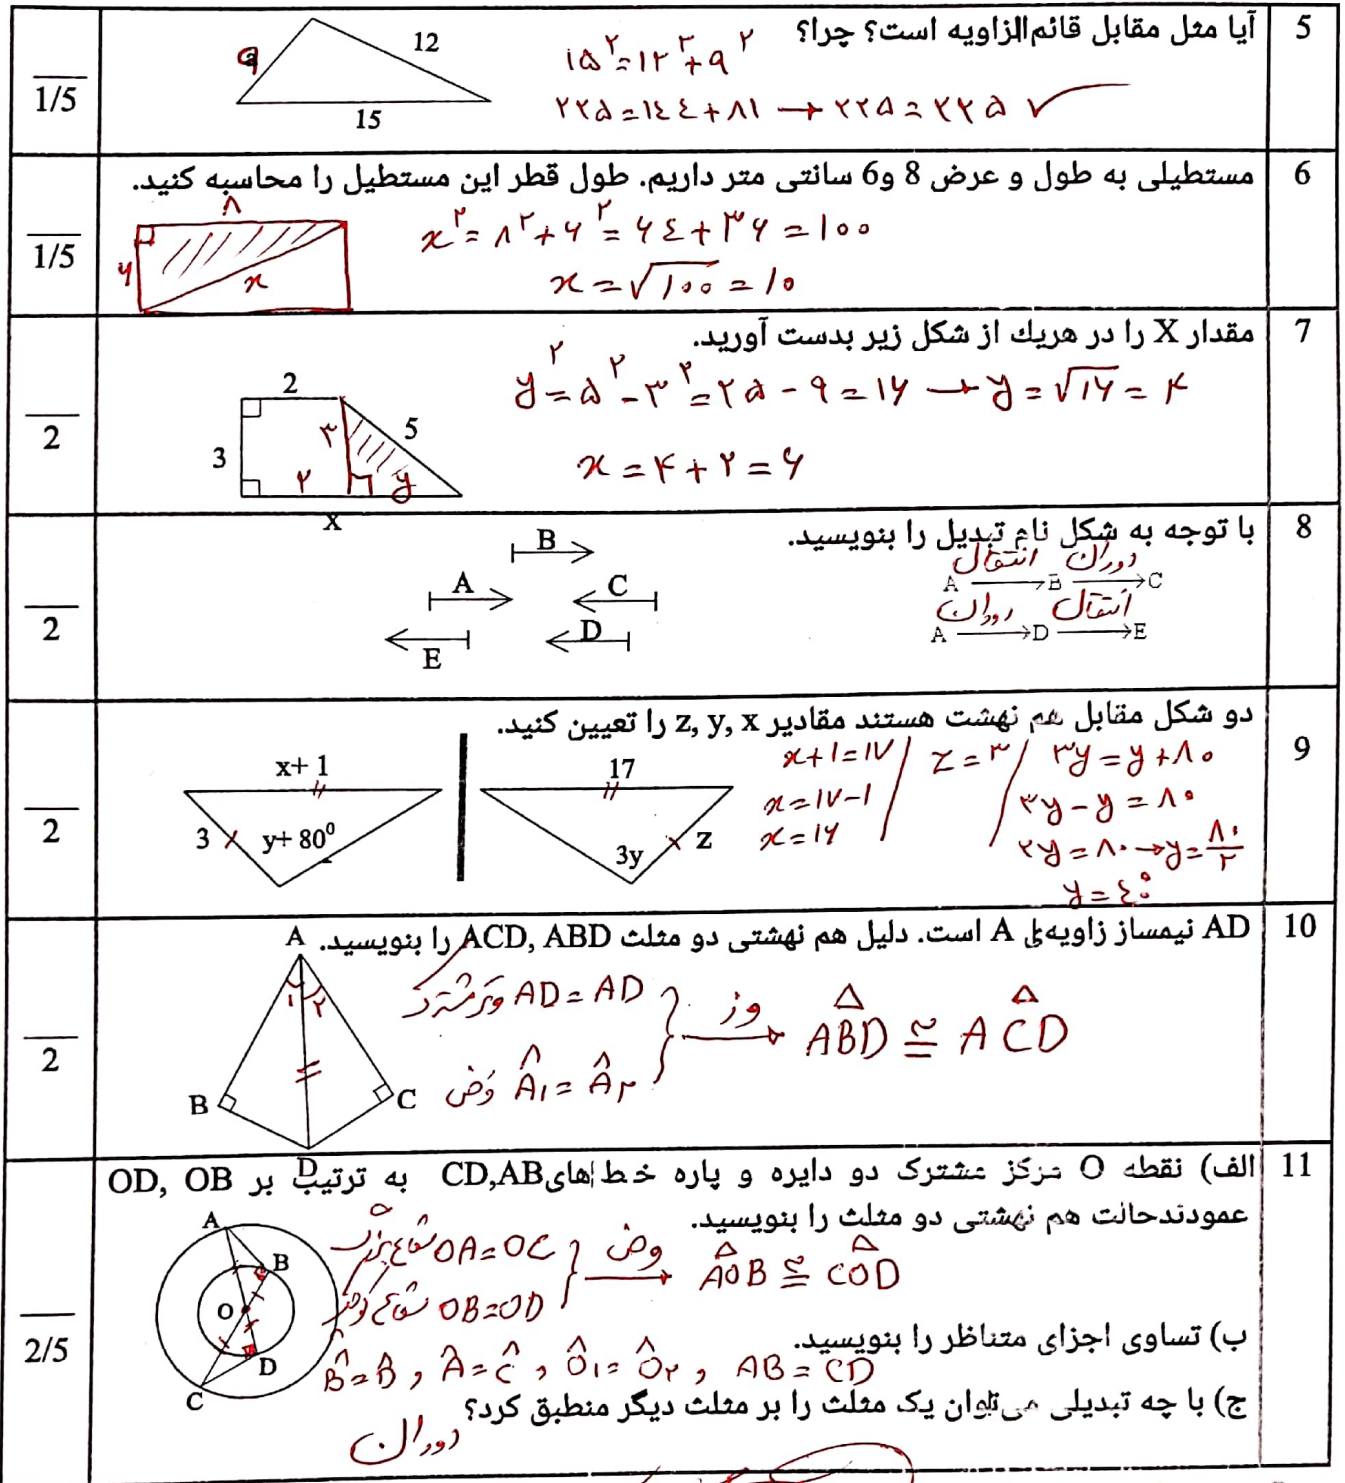 5 آیا مثل مقابل قائم‌الزاویه است؟ چرا؟
9 12 15
۱۵^۲ = ۱۲^۲ + ۹^۲
۲۲۵ = ۱۴۴ + ۸۱ → ۲۲۵ = ۲۲۵ ✓
1/5
6 مستطیلی به طول و عرض 8 و6 سانتی متر داریم. طول قطر این مستطیل را محاسبه کنید.
۸ ۶ x
x^۲ = ۸^۲ + ۶^۲ = ۶۴ + ۳۶ = ۱۰۰
x = √۱۰۰ = ۱۰
1/5
7 مقدار X را در هریك از شكل زیر بدست آورید.
y^۲ = ۵^۲ - ۳^۲ = ۲۵ - ۹ = ۱۶ → y = √۱۶ = ۴
x = ۴ + ۲ = ۶
2 3 5 ۳ ۲ y X
2
8 با توجه به شکل نام تبدیل را بنویسید.
A انتقال → B دوران → C
A دوران → D انتقال → E
B
A C
D
E
2
9 دو شکل مقابل هم نهشت هستند مقادیر z, y, x را تعیین کنید.
x+ 1 3 y+ 80⁰
17 3y Z
x + ۱ = ۱۷ / z = ۳ / ۳y = y + ۸۰
x = ۱۷ - ۱ ۳y - y = ۸۰
x = ۱۶ ۲y = ۸۰ → y = ۸۰/۲
y = ۴۰°
2
10 AD نیمساز زاویه‌ی A است. دلیل هم نهشتی دو مثلث ACD, ABD را بنویسید.
A ۱ ۲ B C D
وتر مشترک AD = AD
فرض Â۱ = Â۲
وز → ABD ≅ ACD
2
11 الف) نقطه O مرکز مشترک دو دایره و پاره خط های CD,AB به ترتیب بر OD, OB
عمودندحالت هم نهشتی دو مثلث را بنویسید.
A B O D C
شعاع بزرگ OA = OC
OB = OD
وض → AOB ≅ COD
ب) تساوی اجزای متناظر را بنویسید.
B̂ = B̂ , Â = Ĉ , Ô۱ = Ô۲ , AB = CD
ج) با چه تبدیلی می‌توان یک مثلث را بر مثلث دیگر منطبق کرد؟
دوران
2/5